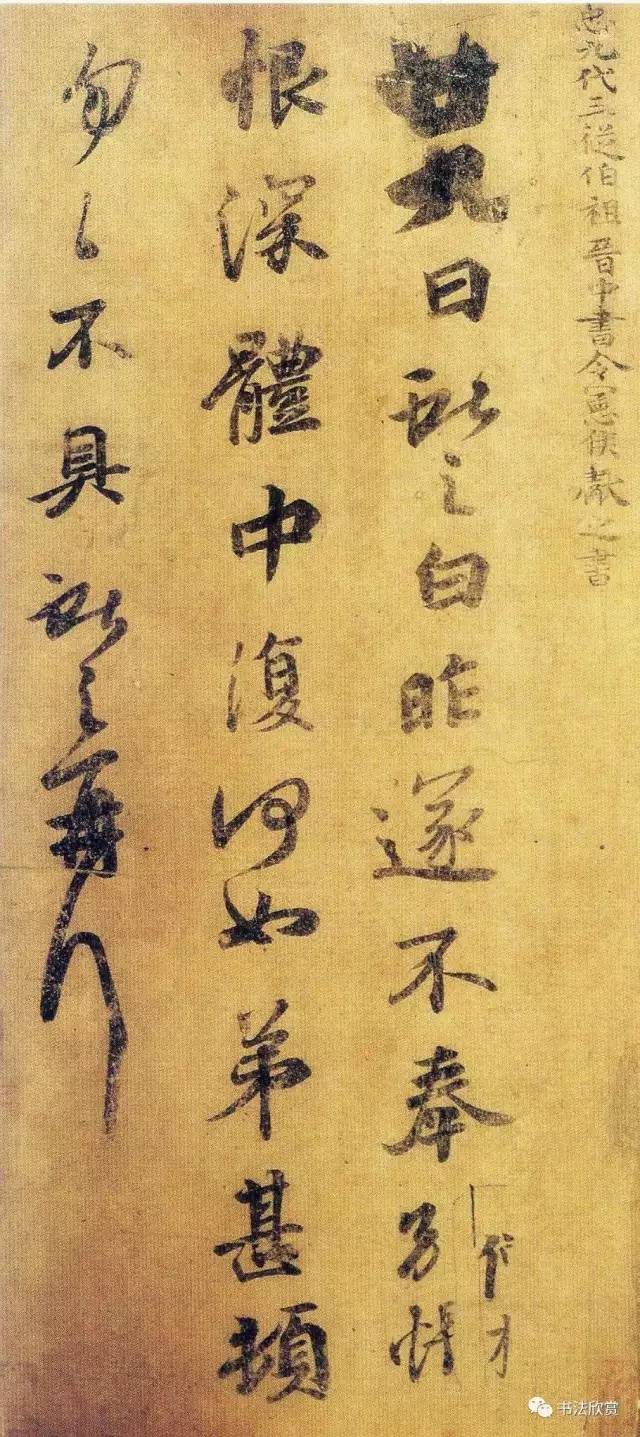 𢘑九代三從伯祖晉中書令憲侯獻之書
廿九日獻之白昨遂不奉別悵
恨深體中復何如弟甚頓
匆〻不具獻之再拜
书法欣赏